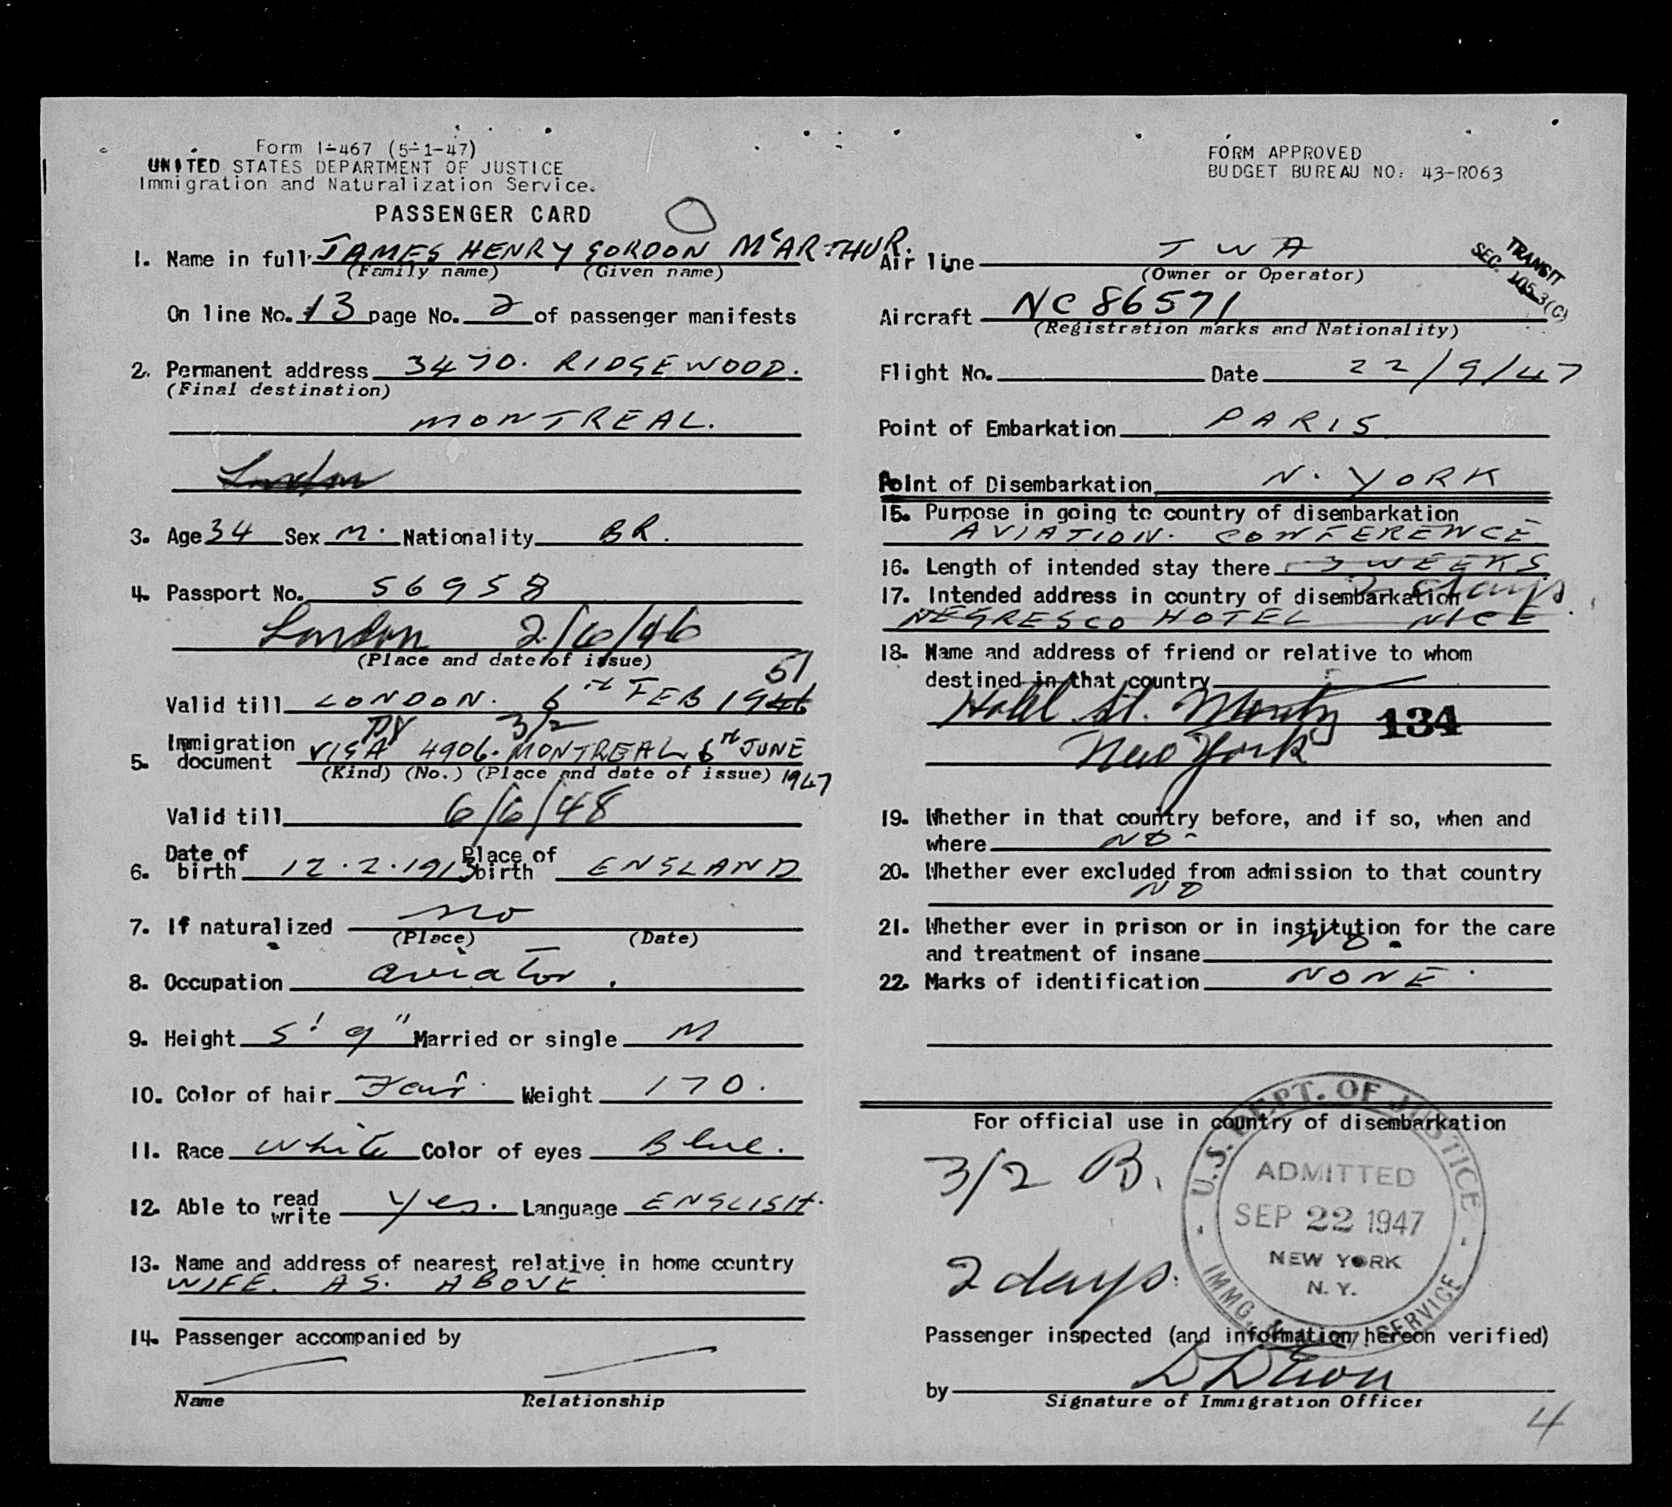 Form I-467 (5-1-47)
UNITED STATES DEPARTMENT OF JUSTICE
Immigration and Naturalization Service.
PASSENGER CARD
1. Name in full JAMES HENRY GORDON McARTHUR.
(Family name) (Given name)
On line No. 13 page No. 2 of passenger manifests
2. Permanent address 3470. RIDGEWOOD.
(Final destination)
MONTREAL.
London
3. Age 34 Sex M. Nationality BR.
4. Passport No. 56958
London 2/6/46
(Place and date of issue)
51
Valid till LONDON. 6th FEB 1946
PV 3/2
5. Immigration document VISA 4906. MONTREAL 6th JUNE
(Kind) (No.) (Place and date of issue) 1947
Valid till 6/6/48
6. Date of birth 12.2.1913 Place of birth ENGLAND
7. If naturalized no
(Place) (Date)
8. Occupation aviator.
9. Height 5' 9" Married or single M
10. Color of hair Fair. Weight 170.
11. Race White Color of eyes Blue.
12. Able to read write yes. Language ENGLISH.
13. Name and address of nearest relative in home country
WIFE. AS. ABOVE
14. Passenger accompanied by
Name Relationship
FORM APPROVED
BUDGET BUREAU NO. 43-R063
TRANSIT
SEC. 105.3(C)
Air line TWA
(Owner or Operator)
Aircraft NC 86571
(Registration marks and Nationality)
Flight No. Date 22/9/47
Point of Embarkation PARIS
Point of Disembarkation N. YORK
15. Purpose in going to country of disembarkation
AVIATION. CONFERENCE
16. Length of intended stay there 3 WEEKS
2 days
17. Intended address in country of disembarkation
NEGRESCO HOTEL NICE
18. Name and address of friend or relative to whom
destined in that country
Hotel St. Moritz 134
New York
19. Whether in that country before, and if so, when and
where NO
20. Whether ever excluded from admission to that country
NO
21. Whether ever in prison or in institution for the care
and treatment of insane NO.
22. Marks of identification NONE.
For official use in country of disembarkation
3/2 B.
2 days.
U.S. DEPT. OF JUSTICE
ADMITTED
SEP 22 1947
NEW YORK
N. Y.
IMMG. SERVICE
Passenger inspected (and information hereon verified)
by
Signature of Immigration Officer
4